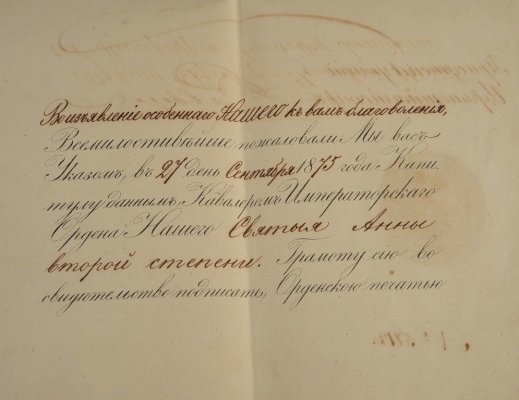 Во изъявленіе особеннаго Нашего къ вамъ благоволенія,
Всемилостивѣйше пожаловали Мы васъ
Указомъ, въ 27 день Сентября 1875 года Капи-
тулу даннымъ, Кавалеромъ Императорскаго
Ордена Нашего Святыя Анны
второй степени. Грамоту сію во
свидѣтельство подписать, Орденскою печатью